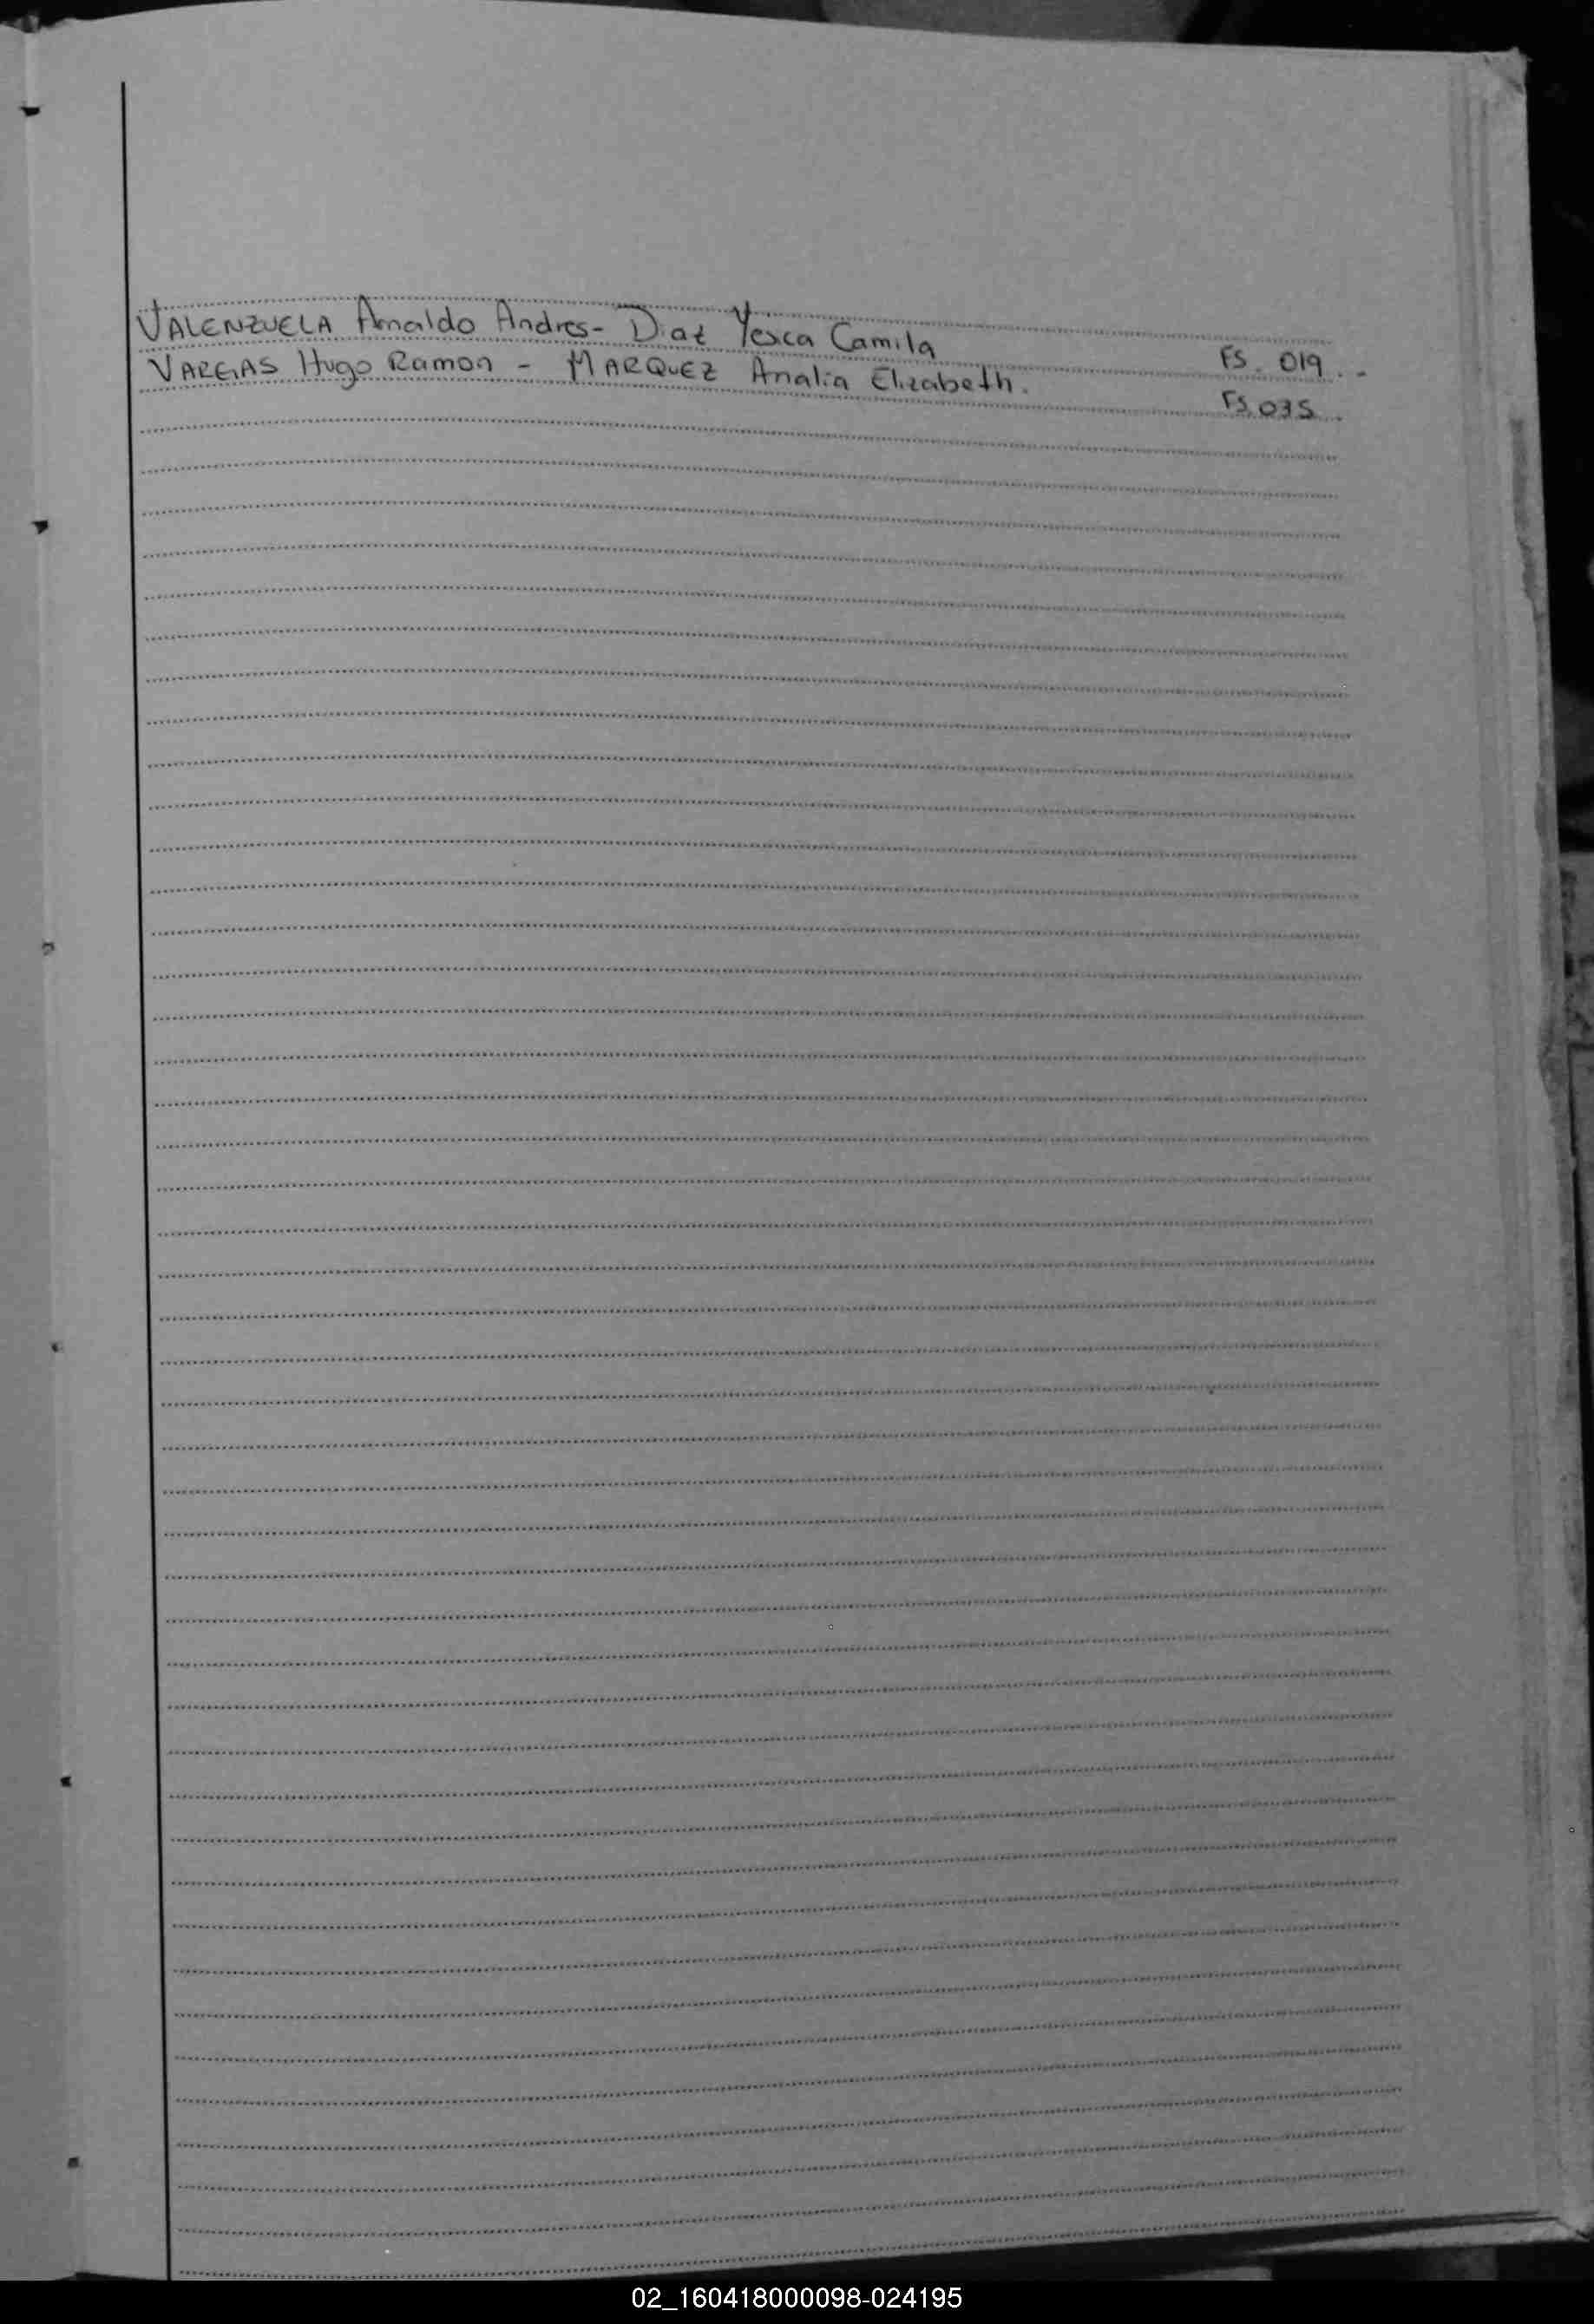 VALENZUELA Arnaldo Andres - Diaz Yesica Camila FS. 019..
VARGAS Hugo Ramon - MARQUEZ Analia Elizabeth. FS. 035.
02_160418000098-024195